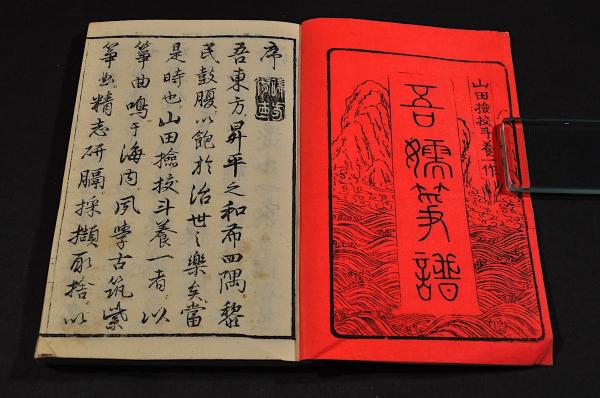 山田撿挍斗養一作
吾嬬筝譜
序
吾東方昇平之和布四隅黎
民鼓腹以飽於治世之樂矣當
是時也山田撿挍斗養一者以
筝曲鳴于海内夙學古筑紫
筝曲精志研膈採擷取捨以